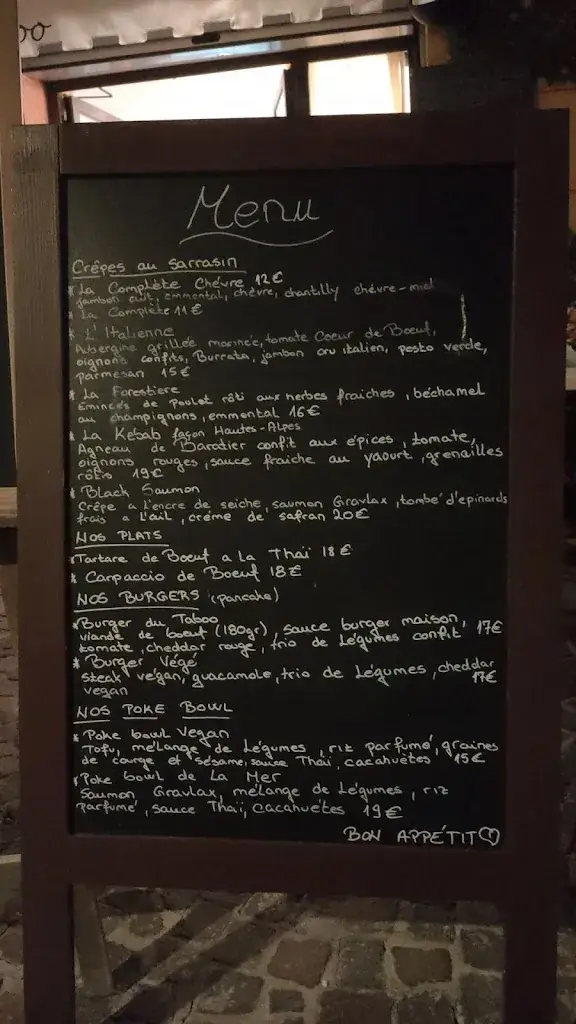 Menu
Crêpes au Sarrasin
* La Complète Chèvre 12€
jambon cuit, emmental, chèvre, chantilly chèvre-miel
* La Complète 11€
* L'Italienne
Aubergine grillée marinée, tomate Coeur de Boeuf,
oignons confits, Burrata, jambon cru italien, pesto verde,
parmesan 15€
* La Forestiere
Emincés de Poulet rôti aux herbes fraiches, béchamel
au champignons, emmental 16€
* La Kébab façon Hautes-Alpes
Agneau de Baratier confit aux épices, tomate,
oignons rouges, sauce fraiche au yaourt, grenailles
rôtis 19€
* Black Saumon
Crêpe a l'encre de seiche, saumon Gravlax, tombé d'epinards
frais a l'ail, crème de safran 20€
NOS PLATS
* Tartare de Boeuf a La Thaï 18€
* Carpaccio de Boeuf 18€
NOS BURGERS (pancake)
* Burger du Taboo
viande de boeuf (180gr), sauce burger maison,
tomate, cheddar rouge, trio de Légumes confit 17€
* Burger Végé
Steak végan, guacamole, trio de Légumes, cheddar
vegan 17€
NOS POKE BOWL
* Poke bowl Vegan
Tofu, mélange de Légumes, riz parfumé, graines
de courge et sésame, sauce Thaï, cacahuètes 15€
* Poke bowl de La Mer
Saumon Gravlax, mélange de Légumes, riz
parfumé, sauce Thaï, cacahuètes 19€
BON APPÉTIT ♡